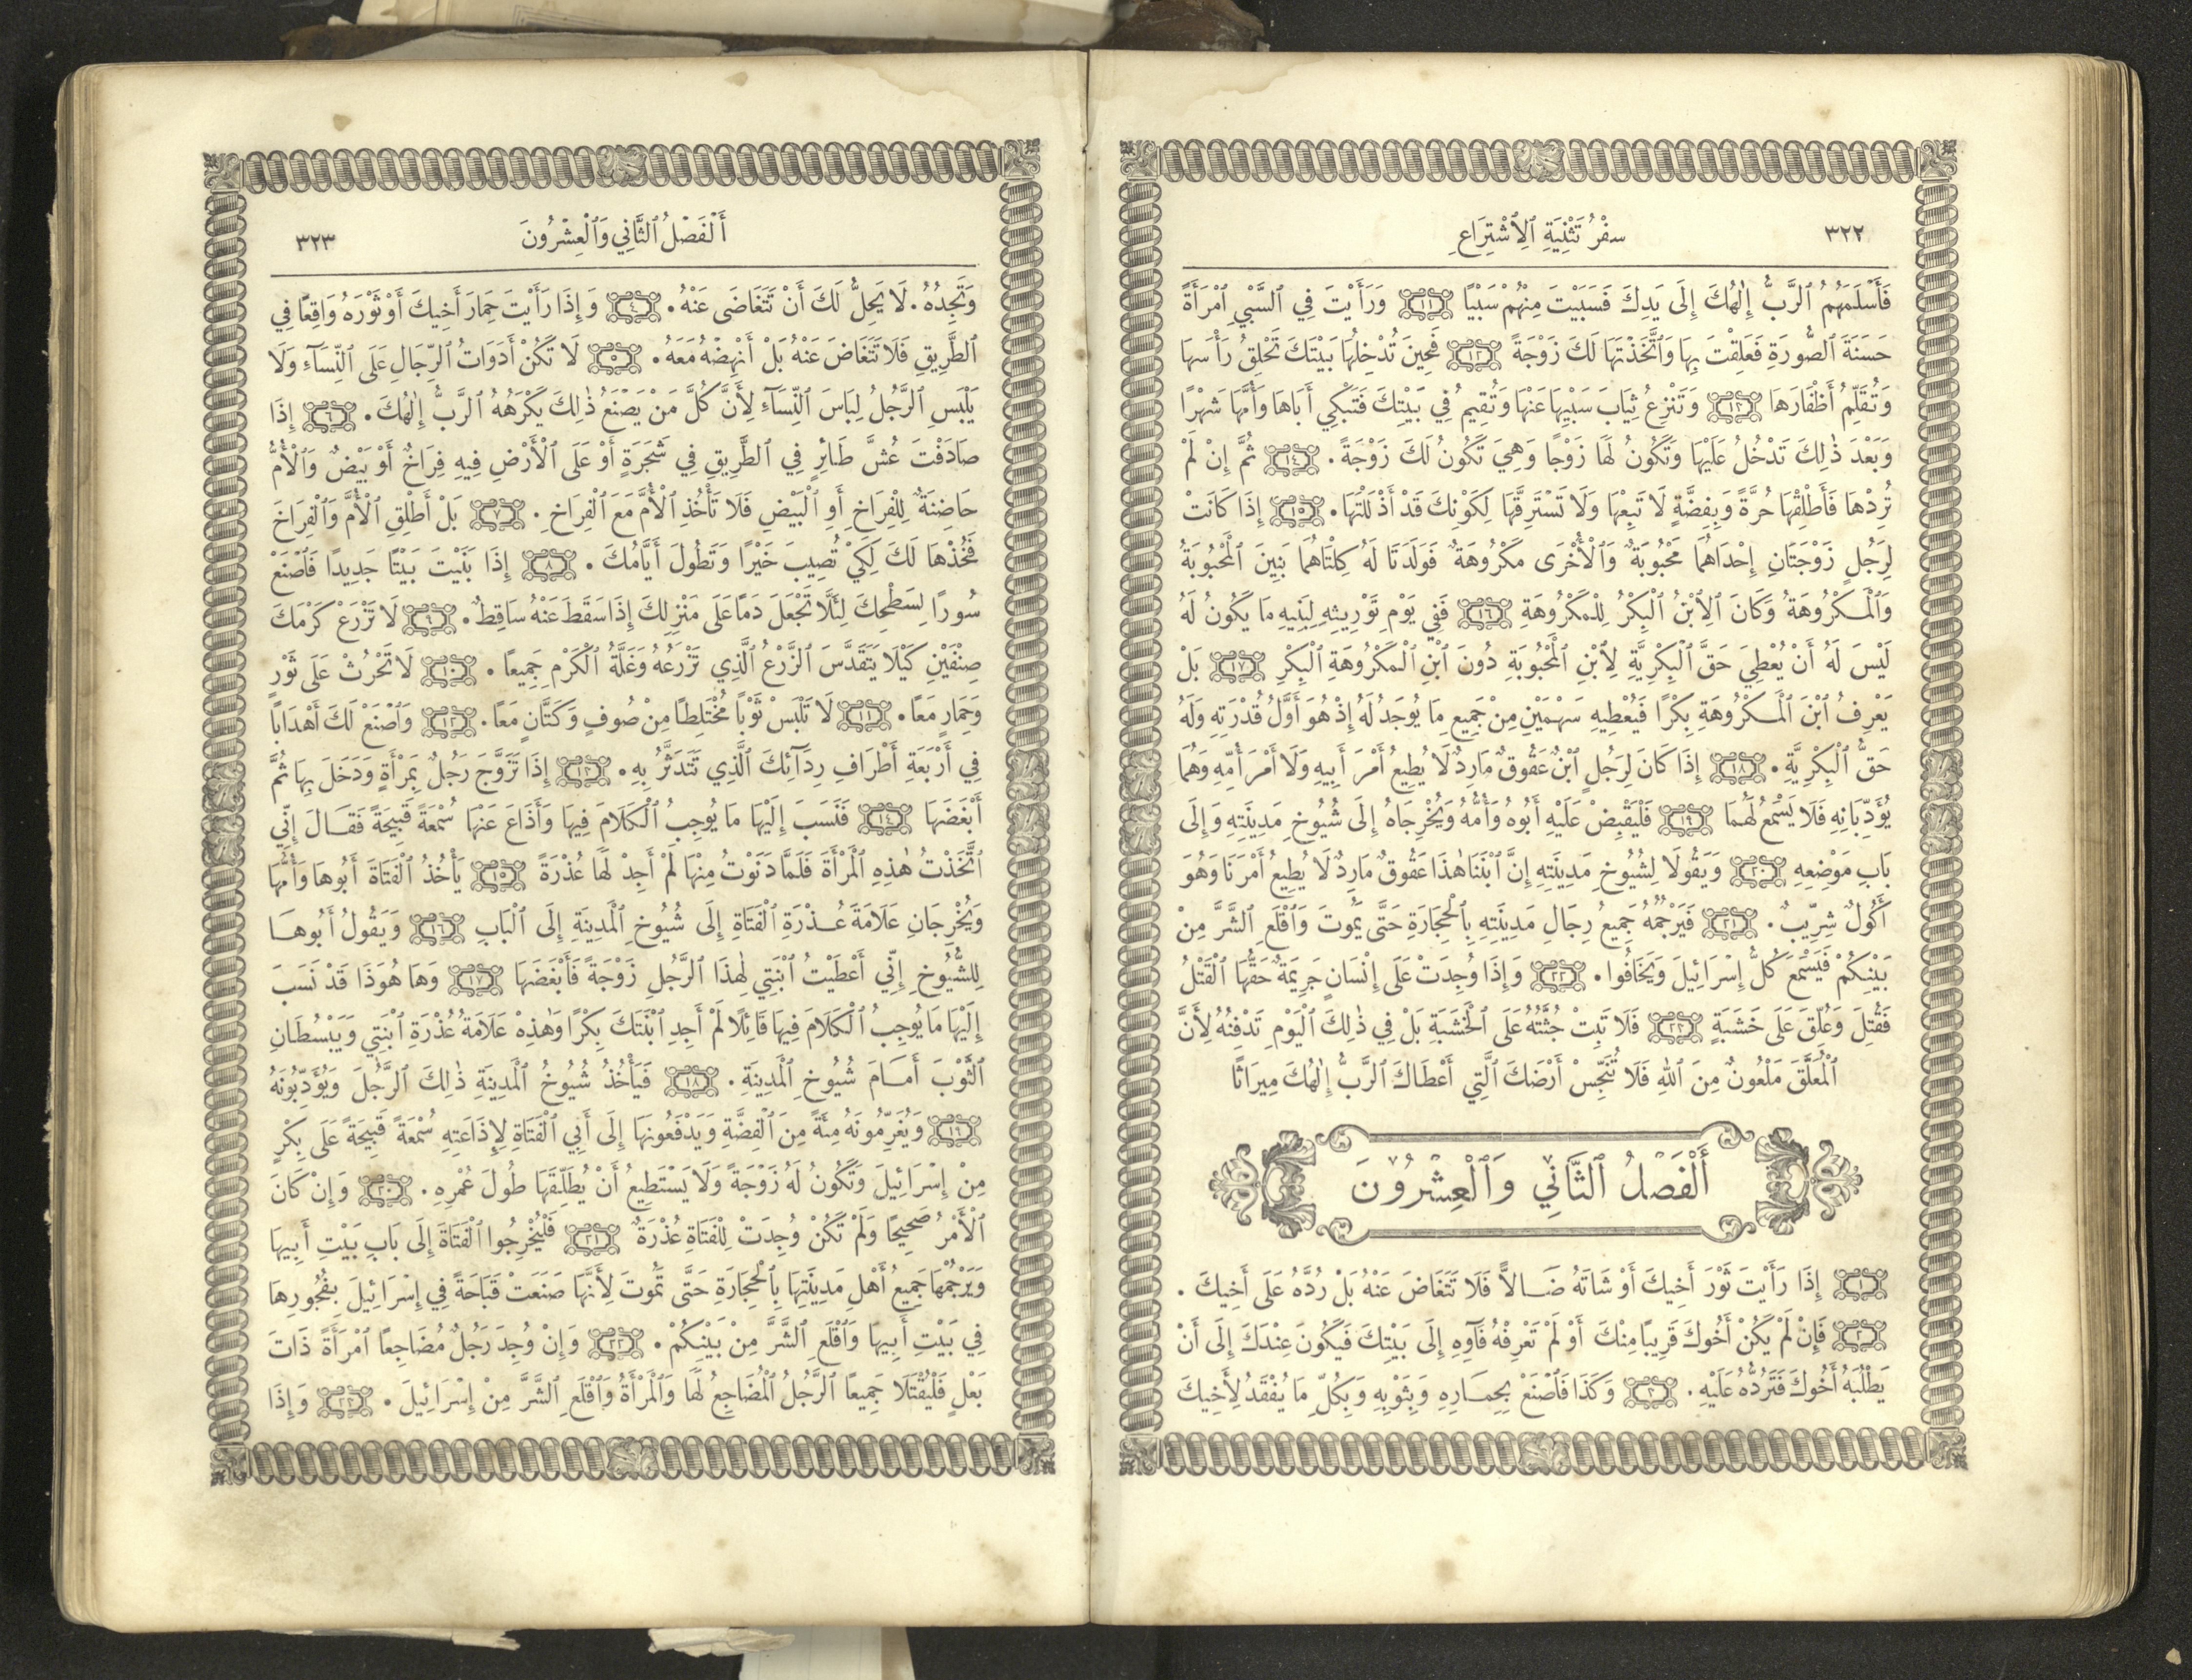 ٣٢٢ سِفْرُ تَثْنِيَةِ ٱلِٱشْتِرَاعِ
فَأَسْلَمَهُمُ ٱلرَّبُّ إِلٰهُكَ إِلَى يَدِكَ فَسَبَيْتَ مِنْهُمْ سَبْيًا ١١ وَرَأَيْتَ فِي ٱلسَّبْيِ ٱمْرَأَةً
حَسَنَةَ ٱلصُّورَةِ فَعَلِقْتَ بِهَا وَٱتَّخَذْتَهَا لَكَ زَوْجَةً ١٢ فَحِينَ تُدْخِلُهَا بَيْتَكَ تَحْلِقُ رَأْسَهَا
وَتُقَلِّمُ أَظْفَارَهَا ١٣ وَتَنْزِعُ ثِيَابَ سَبْيِهَا عَنْهَا وَتُقِيمُ فِي بَيْتِكَ فَتَبْكِي أَبَاهَا وَأُمَّهَا شَهْرًا
وَبَعْدَ ذٰلِكَ تَدْخُلُ عَلَيْهَا وَتَكُونُ لَهَا زَوْجًا وَهِيَ تَكُونُ لَكَ زَوْجَةً. ١٤ ثُمَّ إِنْ لَمْ
تُرِدْهَا فَأَطْلِقْهَا حُرَّةً وَبِفِضَّةٍ لَا تَبِعْهَا وَلَا تَسْتَرِقَّهَا لِكَوْنِكَ قَدْ أَذْلَلْتَهَا. ١٥ إِذَا كَانَتْ
لِرَجُلٍ زَوْجَتَانِ إِحْدَاهُمَا مَحْبُوبَةٌ وَٱلْأُخْرَى مَكْرُوهَةٌ فَوَلَدَتَا لَهُ كِلْتَاهُمَا بَنِينَ ٱلْمَحْبُوبَةُ
وَٱلْمَكْرُوهَةُ وَكَانَ ٱلِٱبْنُ ٱلْبِكْرُ لِلْمَكْرُوهَةِ ١٦ فَفِي يَوْمِ تَوْرِيثِهِ لِبَنِيهِ مَا يَكُونُ لَهُ
لَيْسَ لَهُ أَنْ يُعْطِيَ حَقَّ ٱلْبِكْرِيَّةِ لِٱبْنِ ٱلْمَحْبُوبَةِ دُونَ ٱبْنِ ٱلْمَكْرُوهَةِ ٱلْبِكْرِ ١٧ بَلْ
يَعْرِفُ ٱبْنَ ٱلْمَكْرُوهَةِ بِكْرًا فَيُعْطِيهِ سَهْمَيْنِ مِنْ جَمِيعِ مَا يُوجَدُ لَهُ إِذْ هُوَ أَوَّلُ قُدْرَتِهِ وَلَهُ
حَقُّ ٱلْبِكْرِيَّةِ. ١٨ إِذَا كَانَ لِرَجُلٍ ٱبْنٌ عَقُوقٌ مَارِدٌ لَا يُطِيعُ أَمْرَ أَبِيهِ وَلَا أَمْرَ أُمِّهِ وَهُمَا
يُؤَدِّبَانِهِ فَلَا يَسْمَعُ لَهُمَا ١٩ فَلْيَقْبِضْ عَلَيْهِ أَبُوهُ وَأُمُّهُ وَيُخْرِجَاهُ إِلَى شُيُوخِ مَدِينَتِهِ وَإِلَى
بَابِ مَوْضِعِهِ ٢٠ وَيَقُولَا لِشُيُوخِ مَدِينَتِهِ إِنَّ ٱبْنَنَا هٰذَا عَقُوقٌ مَارِدٌ لَا يُطِيعُ أَمْرَنَا وَهُوَ
أَكُولٌ شِرِّيبٌ. ٢١ فَيَرْجُمُهُ جَمِيعُ رِجَالِ مَدِينَتِهِ بِٱلْحِجَارَةِ حَتَّى يَمُوتَ وَٱقْلَعِ ٱلشَّرَّ مِنْ
بَيْنِكُمْ فَيَسْمَعَ كُلُّ إِسْرَائِيلَ وَيَخَافُوا. ٢٢ وَإِذَا وُجِدَتْ عَلَى إِنْسَانٍ جَرِيمَةٌ حَقُّهَا ٱلْقَتْلُ
فَقُتِلَ وَعُلِّقَ عَلَى خَشَبَةٍ ٢٣ فَلَا تَبِتْ جُثَّتُهُ عَلَى ٱلْخَشَبَةِ بَلْ فِي ذٰلِكَ ٱلْيَوْمِ تَدْفِنُهُ لِأَنَّ
ٱلْمُعَلَّقَ مَلْعُونٌ مِنَ ٱللهِ فَلَا تُنَجِّسْ أَرْضَكَ ٱلَّتِي أَعْطَاكَ ٱلرَّبُّ إِلٰهُكَ مِيرَاثًا
أَلْفَصْلُ ٱلثَّانِي وَٱلْعِشْرُونَ
١ إِذَا رَأَيْتَ ثَوْرَ أَخِيكَ أَوْ شَاتَهُ ضَالًّا فَلَا تَتَغَاضَ عَنْهُ بَلْ رُدَّهُ عَلَى أَخِيكَ.
٢ فَإِنْ لَمْ يَكُنْ أَخُوكَ قَرِيبًا مِنْكَ أَوْ لَمْ تَعْرِفْهُ فَآوِهِ إِلَى بَيْتِكَ فَيَكُونَ عِنْدَكَ إِلَى أَنْ
يَطْلُبَهُ أَخُوكَ فَتَرُدُّهُ عَلَيْهِ. ٣ وَكَذَا فَٱصْنَعْ بِحِمَارِهِ وَبِثَوْبِهِ وَبِكُلِّ مَا يُفْقَدُ لِأَخِيكَ
أَلْفَصْلُ ٱلثَّانِي وَٱلْعِشْرُونَ ٣٢٣
وَتَجِدُهُ. لَا يَحِلُّ لَكَ أَنْ تَتَغَاضَى عَنْهُ. ٤ وَإِذَا رَأَيْتَ حِمَارَ أَخِيكَ أَوْ ثَوْرَهُ وَاقِعًا فِي
ٱلطَّرِيقِ فَلَا تَتَغَاضَ عَنْهُ بَلْ أَنْهِضْهُ مَعَهُ. ٥ لَا تَكُنْ أَدَوَاتُ ٱلرِّجَالِ عَلَى ٱلنِّسَآءِ وَلَا
يَلْبَسِ ٱلرَّجُلُ لِبَاسَ ٱلنِّسَآءِ لِأَنَّ كُلَّ مَنْ يَصْنَعُ ذٰلِكَ يَكْرَهُهُ ٱلرَّبُّ إِلٰهُكَ. ٦ إِذَا
صَادَفْتَ عُشَّ طَائِرٍ فِي ٱلطَّرِيقِ فِي شَجَرَةٍ أَوْ عَلَى ٱلْأَرْضِ فِيهِ فِرَاخٌ أَوْ بَيْضٌ وَٱلْأُمُّ
حَاضِنَةٌ لِلْفِرَاخِ أَوِ ٱلْبَيْضِ فَلَا تَأْخُذِ ٱلْأُمَّ مَعَ ٱلْفِرَاخِ. ٧ بَلْ أَطْلِقِ ٱلْأُمَّ وَٱلْفِرَاخَ
فَخُذْهَا لَكَ لِكَيْ تُصِيبَ خَيْرًا وَتَطُولَ أَيَّامُكَ. ٨ إِذَا بَنَيْتَ بَيْتًا جَدِيدًا فَٱصْنَعْ
سُورًا لِسَطْحِكَ لِئَلَّا تَجْعَلَ دَمًا عَلَى مَنْزِلِكَ إِذَا سَقَطَ عَنْهُ سَاقِطٌ. ٩ لَا تَزْرَعْ كَرْمَكَ
صِنْفَيْنِ كَيْلَا يَتَقَدَّسَ ٱلزَّرْعُ ٱلَّذِي تَزْرَعُهُ وَغَلَّةُ ٱلْكَرْمِ جَمِيعًا. ١٠ لَا تَحْرُثْ عَلَى ثَوْرٍ
وَحِمَارٍ مَعًا. ١١ لَا تَلْبَسْ ثَوْبًا مُخْتَلِطًا مِنْ صُوفٍ وَكَتَّانٍ مَعًا. ١٢ وَٱصْنَعْ لَكَ أَهْدَابًا
فِي أَرْبَعَةِ أَطْرَافِ رِدَآئِكَ ٱلَّذِي تَتَدَثَّرُ بِهِ. ١٣ إِذَا تَزَوَّجَ رَجُلٌ بِمْرَأَةٍ وَدَخَلَ بِهَا ثُمَّ
أَبْغَضَهَا ١٤ فَنَسَبَ إِلَيْهَا مَا يُوجِبُ ٱلْكَلَامَ فِيهَا وَأَذَاعَ عَنْهَا سُمْعَةً قَبِيحَةً فَقَالَ إِنِّي
ٱتَّخَذْتُ هٰذِهِ ٱلْمَرْأَةَ فَلَمَّا دَنَوْتُ مِنْهَا لَمْ أَجِدْ لَهَا عُذْرَةً ١٥ يَأْخُذُ ٱلْفَتَاةَ أَبُوهَا وَأُمُّهَا
وَيُخْرِجَانِ عَلَامَةَ عُذْرَةِ ٱلْفَتَاةِ إِلَى شُيُوخِ ٱلْمَدِينَةِ إِلَى ٱلْبَابِ ١٦ وَيَقُولُ أَبُوهَا
لِلشُّيُوخِ إِنِّي أَعْطَيْتُ ٱبْنَتِي لِهٰذَا ٱلرَّجُلِ زَوْجَةً فَأَبْغَضَهَا ١٧ وَهَا هُوَذَا قَدْ نَسَبَ
إِلَيْهَا مَا يُوجِبُ ٱلْكَلَامَ فِيهَا قَائِلًا لَمْ أَجِدِ ٱبْنَتَكَ بِكْرًا وَهٰذِهْ عَلَامَةُ عُذْرَةِ ٱبْنَتِي وَيَبْسُطَانِ
ٱلثَّوْبَ أَمَامَ شُيُوخِ ٱلْمَدِينَةِ. ١٨ فَيَأْخُذُ شُيُوخُ ٱلْمَدِينَةِ ذٰلِكَ ٱلرَّجُلَ وَيُؤَدِّبُونَهُ
١٩ وَيُغَرِّمُونَهُ مِئَةً مِنَ ٱلْفِضَّةِ وَيَدْفَعُونَهَا إِلَى أَبِي ٱلْفَتَاةِ لِإِذَاعَتِهِ سُمْعَةً قَبِيحَةً عَلَى بِكْرٍ
مِنْ إِسْرَائِيلَ وَتَكُونُ لَهُ زَوْجَةً وَلَا يَسْتَطِيعُ أَنْ يُطَلِّقَهَا طُولَ عُمْرِهِ. ٢٠ وَإِنْ كَانَ
ٱلْأَمْرُ صَحِيحًا وَلَمْ تَكُنْ وُجِدَتْ لِلْفَتَاةِ عُذْرَةٌ ٢١ فَلْيُخْرِجُوا ٱلْفَتَاةَ إِلَى بَابِ بَيْتِ أَبِيهَا
وَيَرْجُمْهَا جَمِيعُ أَهْلِ مَدِينَتِهَا بِٱلْحِجَارَةِ حَتَّى تَمُوتَ لِأَنَّهَا صَنَعَتْ قَبَاحَةً فِي إِسْرَائِيلَ بِفُجُورِهَا
فِي بَيْتِ أَبِيهَا وَٱقْلَعِ ٱلشَّرَّ مِنْ بَيْنِكُمْ. ٢٢ وَإِنْ وُجِدَ رَجُلٌ مُضَاجِعًا ٱمْرَأَةً ذَاتَ
بَعْلٍ فَلْيُقْتَلَا جَمِيعًا ٱلرَّجُلُ ٱلْمُضَاجِعُ لَهَا وَٱلْمَرْأَةُ وَٱقْلَعِ ٱلشَّرَّ مِنْ إِسْرَائِيلَ. ٢٣ وَإِذَا